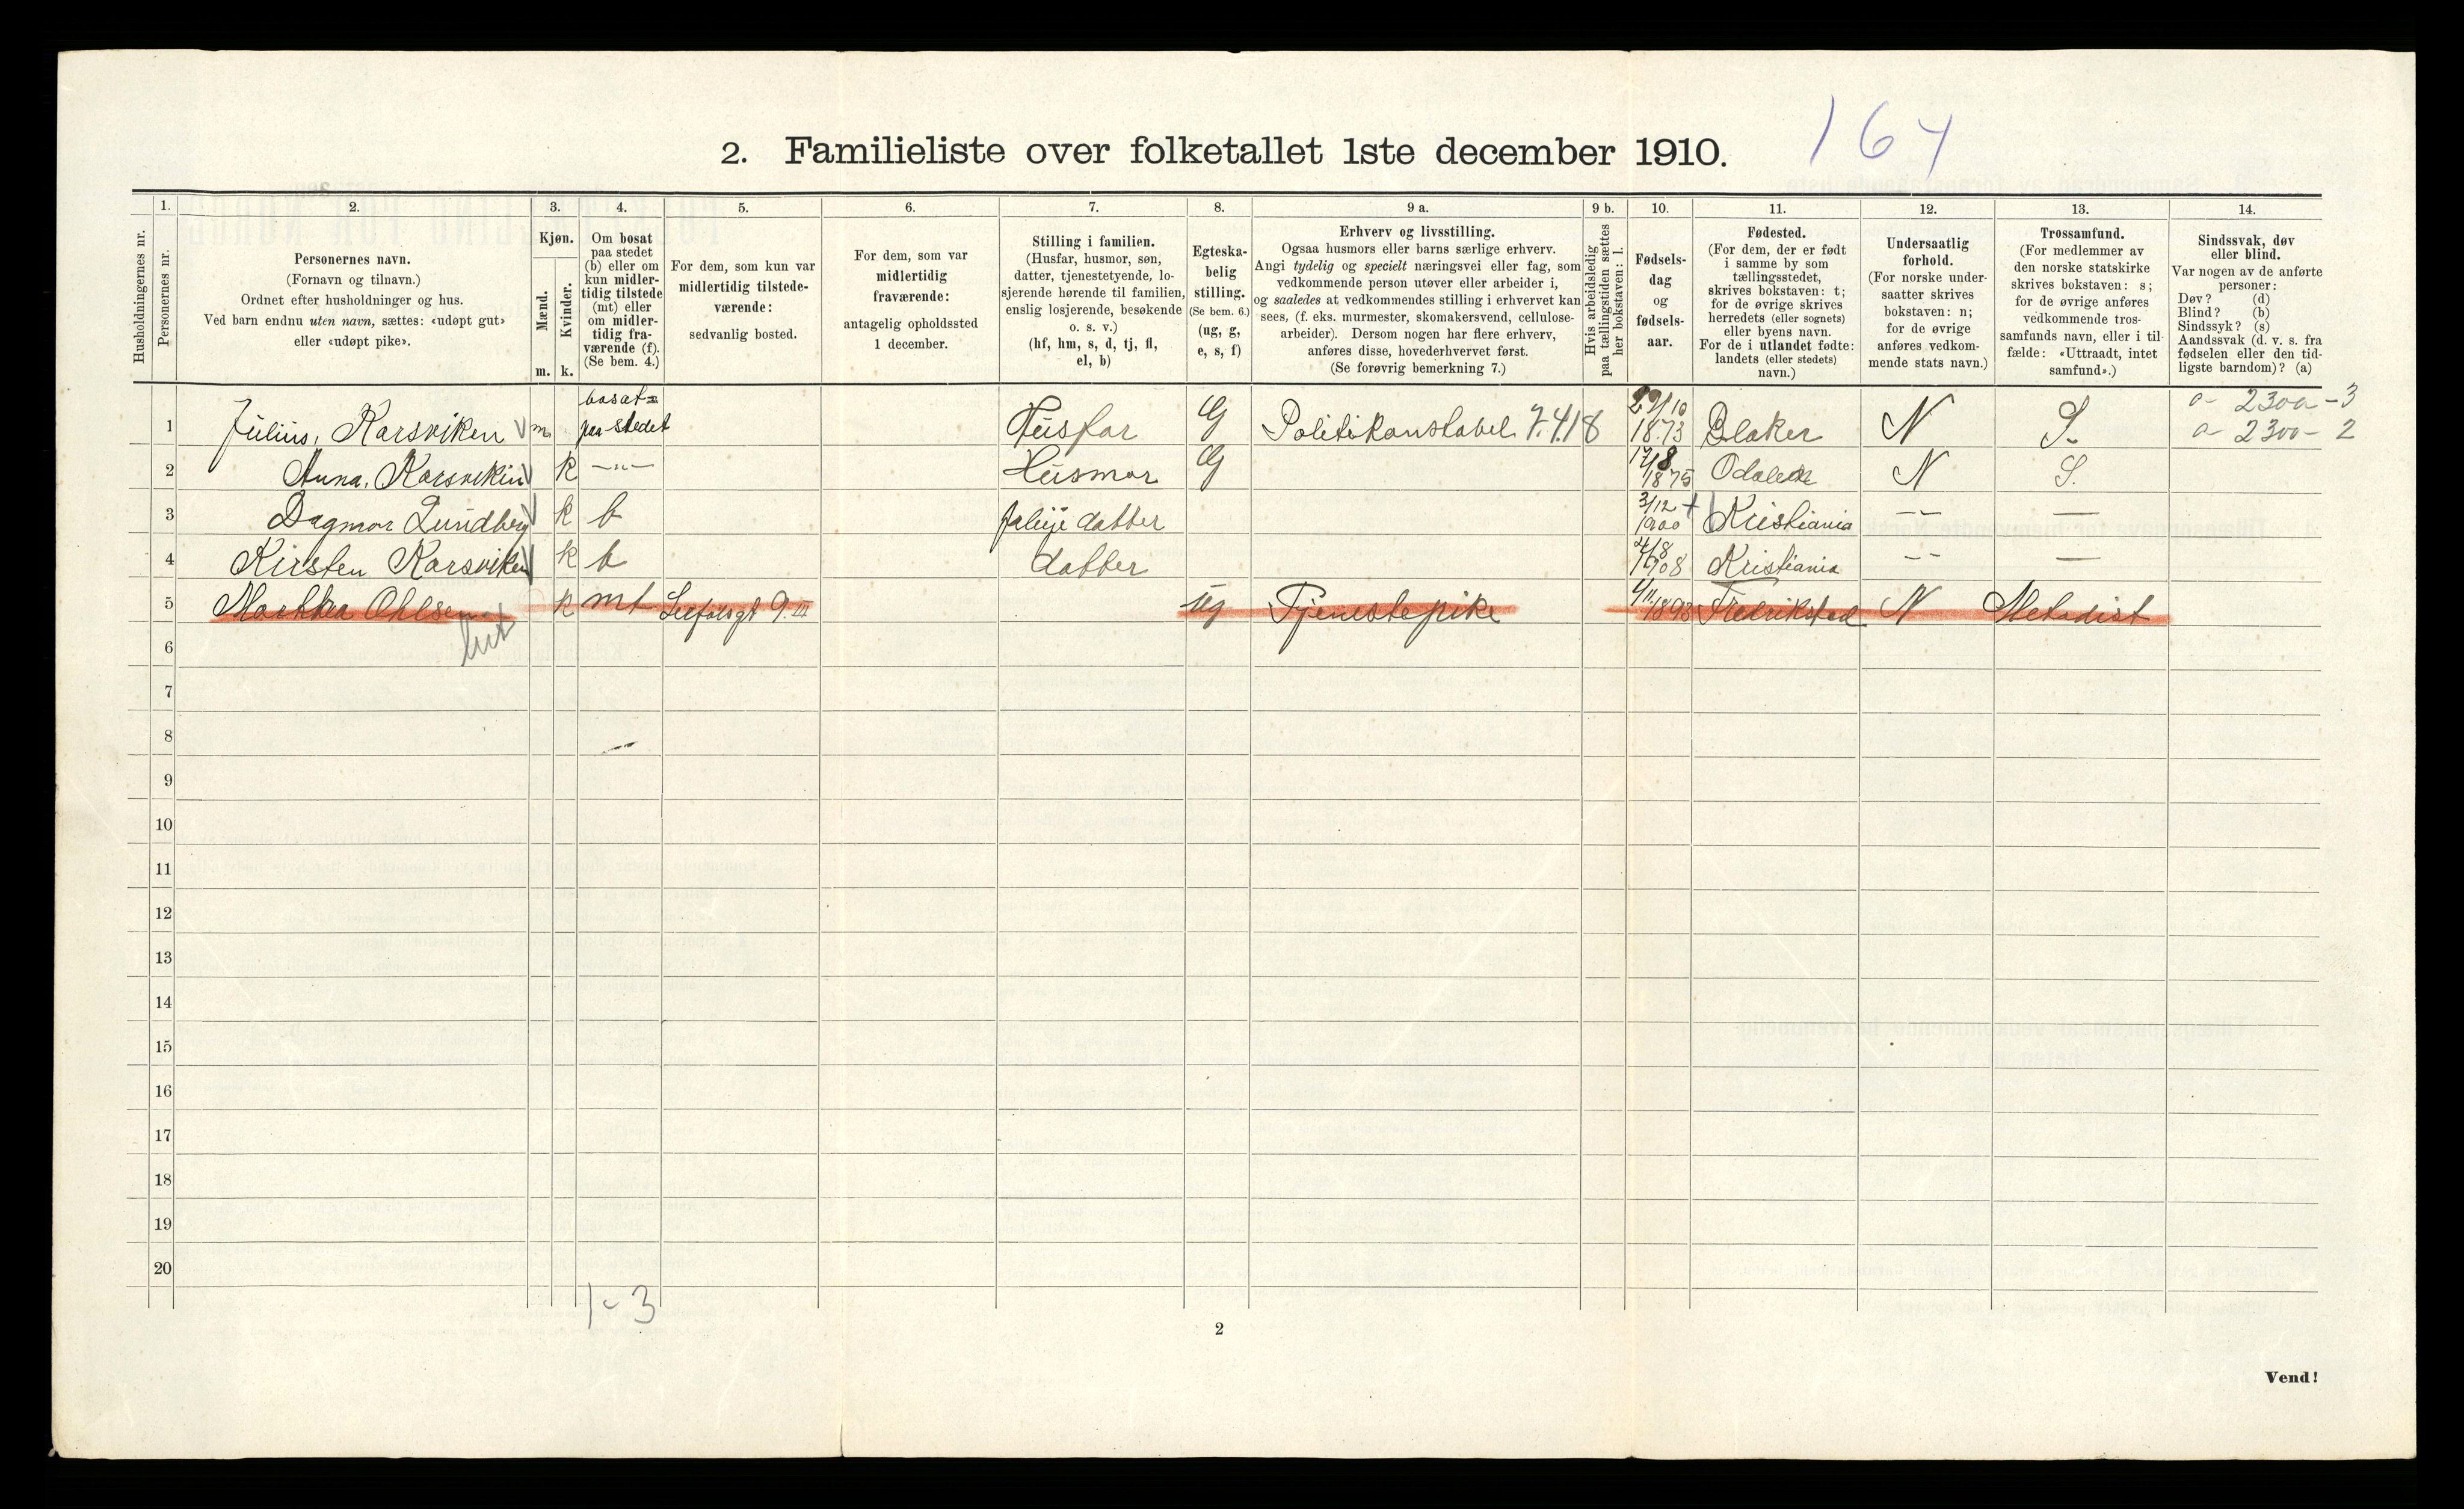 164
2. Familieliste over folketallet 1ste december 1910.
Husholdningernes nr.
1. Personernes nr.
2. Personernes navn.
(Fornavn og tilnavn.)
Ordnet efter husholdninger og hus.
Ved barn endnu uten navn, sættes: «udøpt gut»
eller «udøpt pike».
3. Kjøn.
Mænd. m.
Kvinder. k.
4. Om bosat
paa stedet
(b) eller om
kun midler-
tidig tilstede
(mt) eller
om midler-
tidig fra-
værende (f).
(Se bem. 4.)
5. For dem, som kun var
midlertidig tilstede-
værende:
sedvanlig bosted.
6. For dem, som var
midlertidig
fraværende:
antagelig opholdssted
1 december.
7. Stilling i familien.
(Husfar, husmor, søn,
datter, tjenestetyende, lo-
sjerende hørende til familien,
enslig losjerende, besøkende
o. s. v.)
(hf, hm, s, d, tj, fl,
el, b)
8. Egteska-
belig
stilling.
(Se bem. 6.)
(ug, g,
e, s, f)
9 a. Erhverv og livsstilling.
Ogsaa husmors eller barns særlige erhverv.
Angi tydelig og specielt næringsvei eller fag, som
vedkommende person utøver eller arbeider i,
og saaledes at vedkommendes stilling i erhvervet kan
sees, (f. eks. murmester, skomakersvend, cellulose-
arbeider). Dersom nogen har flere erhverv,
anføres disse, hovederhvervet først.
(Se forøvrig bemerkning 7.)
9 b. Hvis arbeidsledig
paa tællingstiden sættes
her bokstaven: l.
10. Fødsels-
dag
og
fødsels-
aar.
11. Fødested.
(For dem, der er født
i samme by som
tællingsstedet,
skrives bokstaven: t;
for de øvrige skrives
herredets (eller sognets)
eller byens navn.
For de i utlandet fødte:
landets (eller stedets)
navn.)
12. Undersaatlig
forhold.
(For norske under-
saatter skrives
bokstaven: n;
for de øvrige
anføres vedkom-
mende stats navn.)
13. Trossamfund.
(For medlemmer av
den norske statskirke
skrives bokstaven: s;
for de øvrige anføres
vedkommende tros-
samfunds navn, eller i til-
fælde: «Uttraadt, intet
samfund».)
14. Sindssvak, døv
eller blind.
Var nogen av de anførte
personer:
Døv? (d)
Blind? (b)
Sindssyk? (s)
Aandssvak (d. v. s. fra
fødselen eller den tid-
ligste barndom)? (a)
1 Julius, Karsviken m bosat paa stedet Husfar G Politikonstabel 7.418 1873 Blaker N S. a- 2300-3
a- 2300-2
2 Anna, Karsviken k —"— Husmor G 17/8 1875 Odalen N S.
3 Dagmar Lundberg k b datter 3/12 1900 Kristiania -- —
4 Kirsten Karsviken k b datter 1908 Kristiania -- —
5 Marthea Ohlsen k mt 9 III ug Tjenestepike 1893 Fredrikstad N Metodist
6
7
8
9
10
11
12
13
14
15
16
17
18
19
20
1-3
2
Vend!